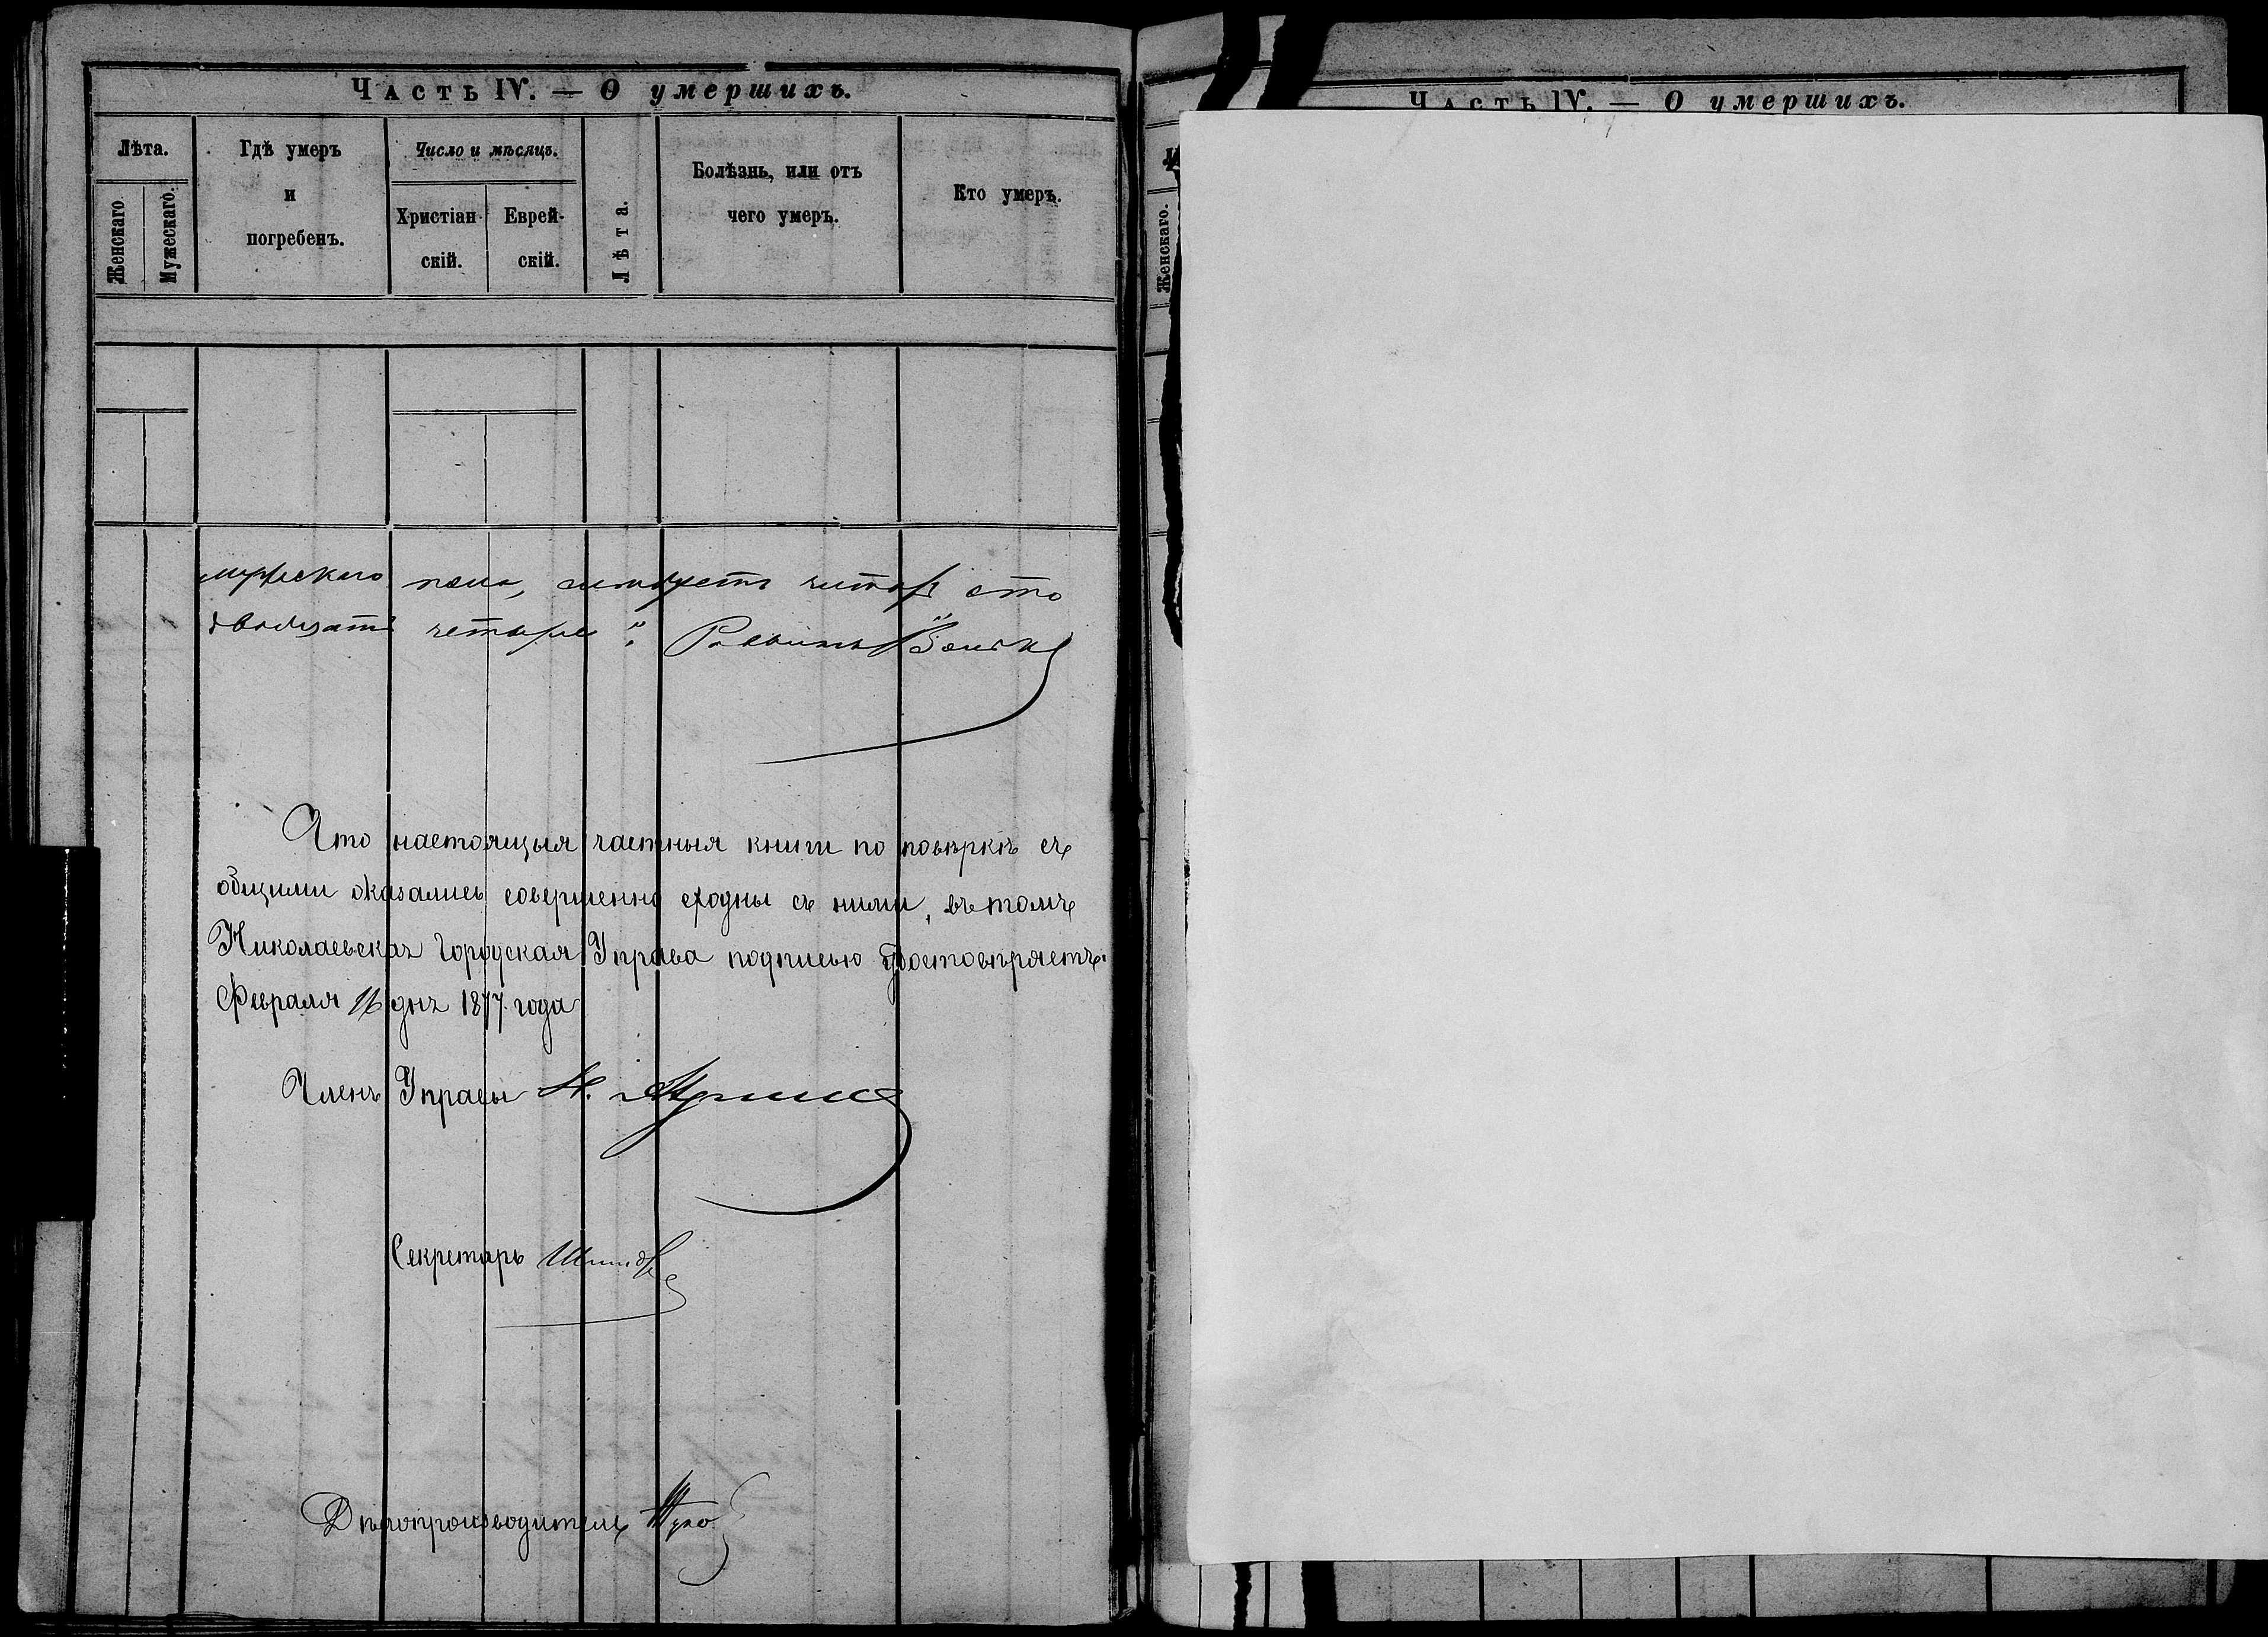 Часть IV. — О умершихъ.
Лѣта.
Женскаго
Мужескаго.
Гдѣ умеръ
и
погребенъ.
Число и мѣсяцъ.
Христіан-
скій.
Еврей-
скій.
Лѣта.
Болѣзнь, или отъ
чего умеръ.
Кто умеръ.
мужескаго пола, слѣдуетъ читать сто
двадцать четыре". Раввинъ
Что настоящыя частныя книги по повѣркѣ съ
общими оказались совершенно сходны съ ними, въ томъ
Николаевская Городская Управа подписью удостовѣряетъ.
Февраля 16 дня 1877 года
Членъ Управы Н.
Секретарь
Дѣлопроизводитель
Часть IV. — О умершихъ.
Женскаго.